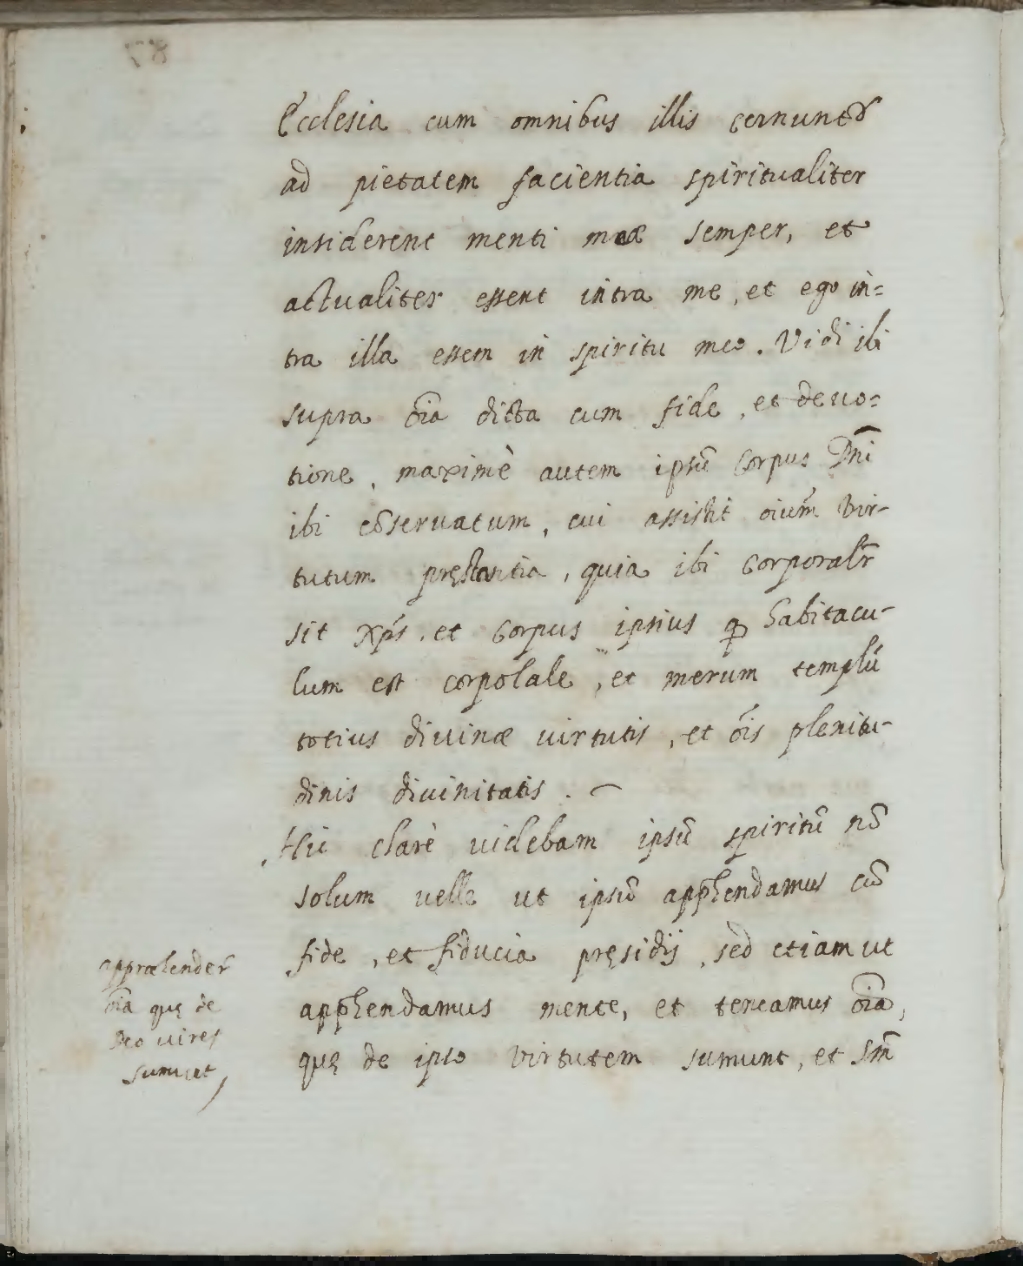 Ecclesia cum omnibus illis cernuntr
ad pietatem facientia spiritualiter
insiderent menti meæ semper, et
actualiter essent intra me, et ego in=
tra illa essem in spiritu meo. Vidi ibi
supra oīa dicta cum fide, et deuo=
tione, maximè autem ipsū Corpus Dn̄i
ibi cōseruatum, cui assistit oium̄ vir-
tutum pręstantia, quia ibi corporalr̄
sit Xp̄s, et Corpus ipsius ꝙ habitacu-
lum est corpolale, et merum templū
totius diuinæ uirtutis, et ōis plenitu-
dinis diuinitatis.
Hic clarè uidebam ipsū spiritū nō
solum uelle ut ipsū app̄hendamus cū
fide, et fiducia pręsidij, sed etiam ut
app̄hendamus mente, et teneamus oīa,
quę de ipso virtutem sumunt, et sm̄
appræhender
oīa quę de
Deo uires
sumunt,